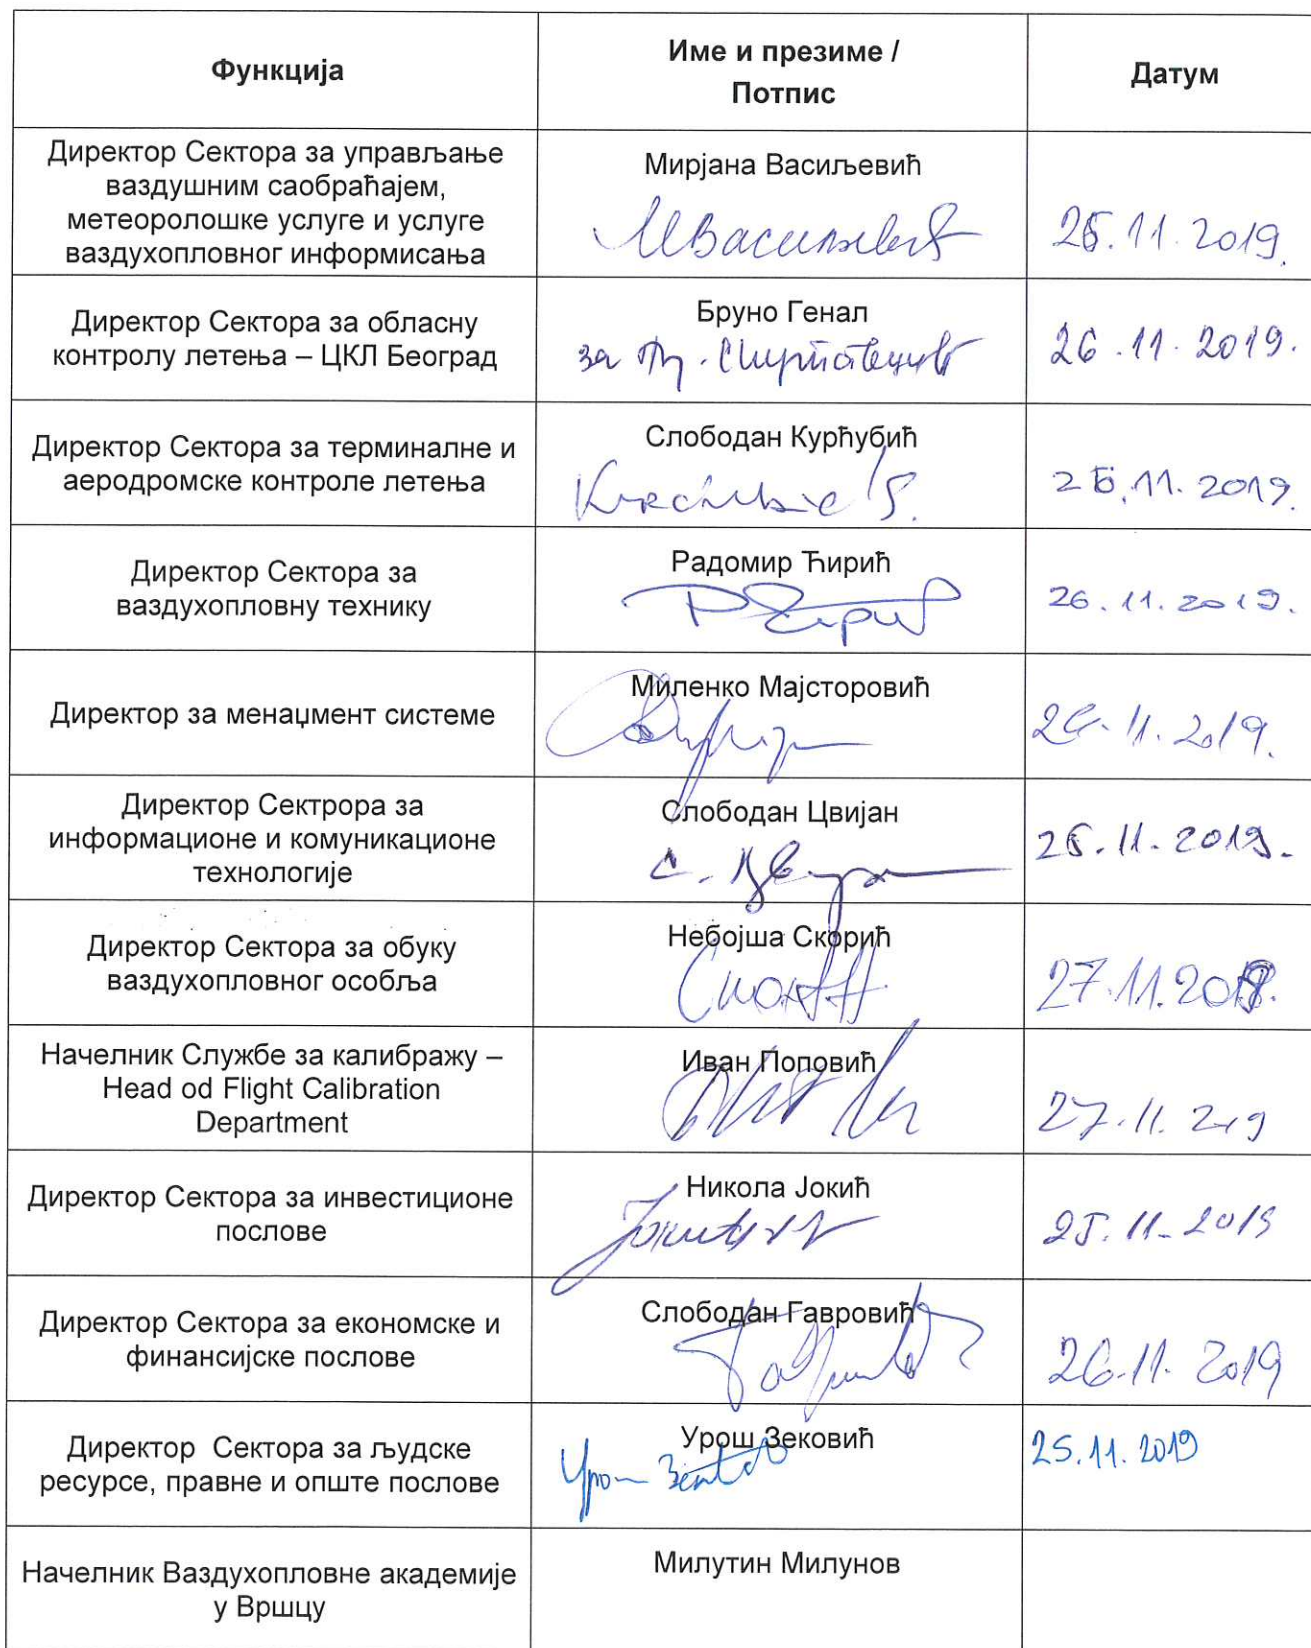 Функција
Име и презиме /
Потпис
Датум
Директор Сектора за управљање
ваздушним саобраћајем,
метеоролошке услуге и услуге
ваздухопловног информисања
Мирјана Васиљевић
МВасиљевић
26.11.2019.
Директор Сектора за обласну
контролу летења – ЦКЛ Београд
Бруно Генал
за
26.11.2019.
Директор Сектора за терминалне и
аеродромске контроле летења
Слободан Курћубић
26.11.2019.
Директор Сектора за
ваздухопловну технику
Радомир Ћирић
26.11.2019.
Директор за менаџмент системе
Миленко Мајсторовић
26.11.2019.
Директор Сектрора за
информационе и комуникационе
технологије
Слободан Цвијан
26.11.2019.
Директор Сектора за обуку
ваздухопловног особља
Небојша Скорић
27.11.2019.
Начелник Службе за калибражу –
Head od Flight Calibration
Department
Иван Поповић
27.11.2019
Директор Сектора за инвестиционе
послове
Никола Јокић
25.11.2019
Директор Сектора за економске и
финансијске послове
Слободан Гавровић
26.11.2019
Директор Сектора за људске
ресурсе, правне и опште послове
Урош Зековић
25.11.2019
Начелник Ваздухопловне академије
у Вршцу
Милутин Милунов